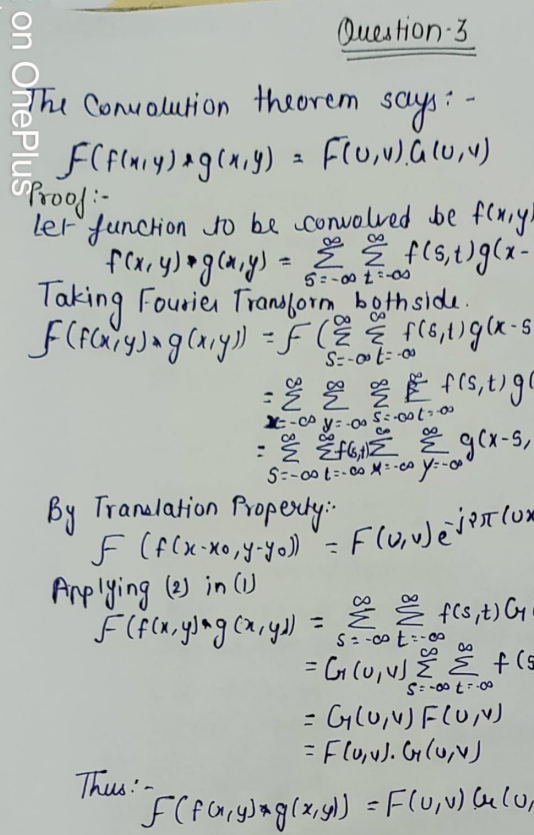 on OnePlus
Question-3
The Convolution theorem says:-
F(f(x,y)*g(x,y) = F(u,v).G(u,v)
Proof:-
Let function to be convolved be f(x,y)
f(x,y)*g(x,y) = Σ_{s=-∞}^{∞} Σ_{t=-∞}^{∞} f(s,t)g(x-
Taking Fourier Transform bothside.
F(f(x,y)*g(x,y)) = F(Σ_{s=-∞}^{∞} Σ_{t=-∞}^{∞} f(s,t)g(x-s
= Σ_{x=-∞}^{∞} Σ_{y=-∞}^{∞} Σ_{s=-∞}^{∞} Σ_{t=-∞}^{∞} f(s,t)g(
= Σ_{s=-∞}^{∞} Σ_{t=-∞}^{∞} f(s,t) Σ_{x=-∞}^{∞} Σ_{y=-∞}^{∞} g(x-s,
By Translation Property:-
F(f(x-x₀,y-y₀)) = F(u,v)e^{-j2π(ux
Applying (2) in (1)
F(f(x,y)*g(x,y)) = Σ_{s=-∞}^{∞} Σ_{t=-∞}^{∞} f(s,t)G
= G(u,v) Σ_{s=-∞}^{∞} Σ_{t=-∞}^{∞} f(s
= G(u,v)F(u,v)
= F(u,v).G(u,v)
Thus:-
F(f(x,y)*g(x,y)) = F(u,v)G(u,